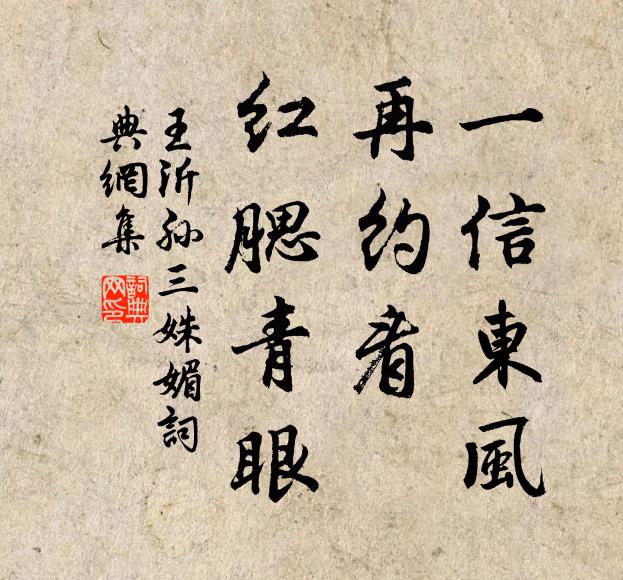 一信東風
再約看
紅腮青眼
王沂孙三姝媚詞
典網集
詞典
网印